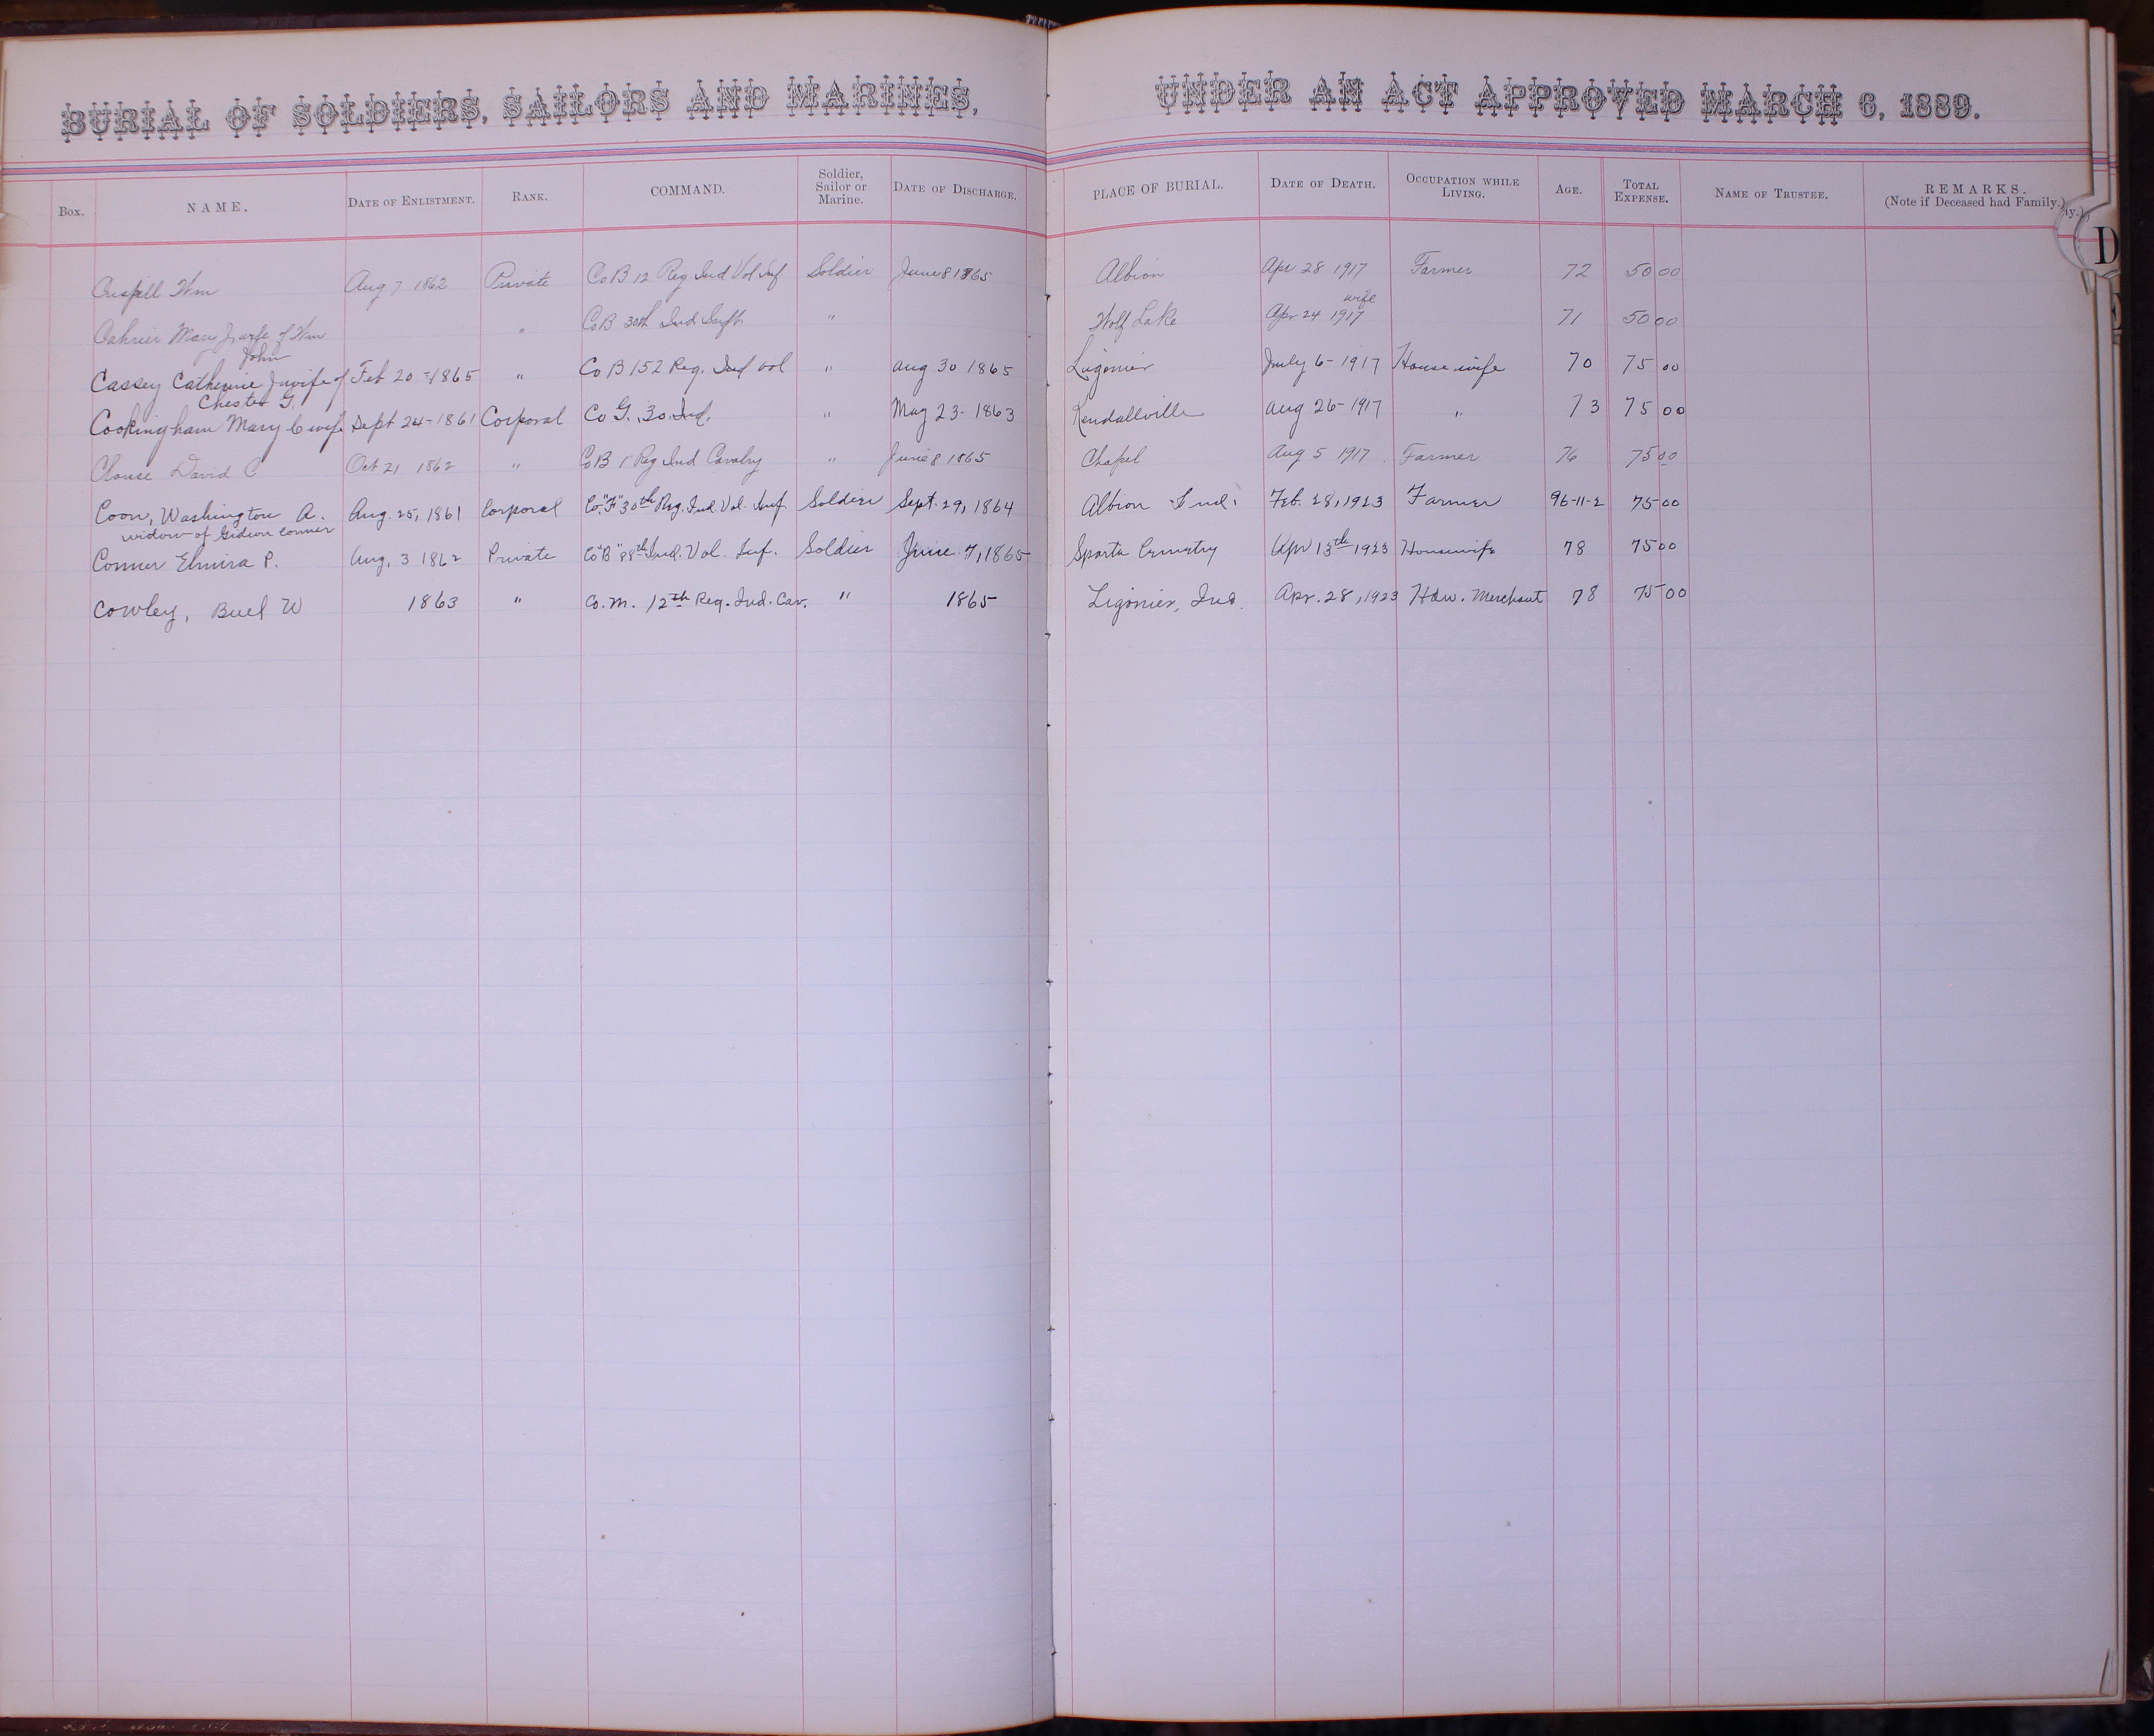 BURIAL OF SOLDIERS, SAILORS AND MARINES, UNDER AN ACT APPROVED MARCH 6, 1889.
Box. NAME. DATE OF ENLISTMENT. RANK. COMMAND. Soldier, Sailor or Marine. DATE OF DISCHARGE. PLACE OF BURIAL. DATE OF DEATH. OCCUPATION WHILE LIVING. AGE. TOTAL EXPENSE. NAME OF TRUSTEE. REMARKS. (Note if Deceased had Family.)
ly.)
D
Crispell Wm Aug 7 1862 Private Co B 12 Reg Ind Vol Inf Soldier June 8 1865 Albion Apr 28 1917 Farmer 72 50 00
wife
Mary J wife of Wm " Co B 30th Ind Inft. " Wolf Lake Apr 24 1917 71 50 00
John
Cassey Catherine J wife of Feb 20 - 1865 " Co B 152 Reg. Ind Vol " Aug 30 1865 Ligonier July 6 - 1917 House wife 70 75 00
Chester G.
Cookingham Mary C wife Sept 24 - 1861 Corporal Co G. 30 Ind. " May 23 - 1863 Kendallville Aug 26 - 1917 " 73 75 00
Clouse David C Oct 21 1862 " Co B 1 Reg Ind Cavalry " June 8 1865 Chapel Aug 5 1917 Farmer 76 75 00
Coon, Washington A. Aug. 25, 1861 Corporal Co. "F" 30th Reg. Ind. Vol. Inf. Soldier Sept. 29, 1864 Albion Ind. Feb. 28, 1923 Farmer 96-11-2 75 00
widow of Gideon Conner
Conner Elmira P. Aug. 3 1862 Private Co "B" 88th Ind. Vol. Inf. Soldier June 7, 1865 Sparta Cemetry Apr 13th 1923 Housewife 78 75 00
Cowley, Buel W 1863 " Co. M. 12th Reg. Ind. Cav. " 1865 Ligonier, Ind. Apr. 28, 1923 Hdw. Merchant 78 75 00